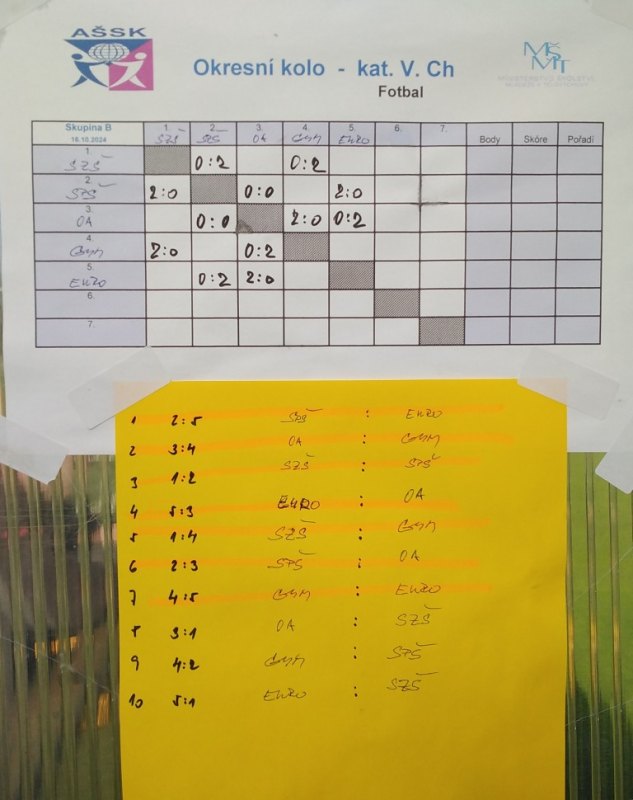 AŠSK
Okresní kolo - kat. V. Ch
Fotbal
MŠMT
MINISTERSTVO ŠKOLSTVÍ,
MLÁDEŽE A TĚLOVÝCHOVY
Skupina B 1. 2. 3. 4. 5. 6. 7. Body Skóre Pořadí
16.10.2024 SZŠ SPŠ OA GYM EURO
1. SZŠ 0:2 0:2
2. SPŠ 2:0 0:0 2:0
3. OA 0:0 2:0 0:2
4. GYM 2:0 0:2
5. EURO 0:2 2:0
6.
7.
1 2:5 SPŠ : EURO
2 3:4 OA : GYM
3 1:2 SZŠ : SPŠ
4 5:3 EURO : OA
5 1:4 SZŠ : GYM
6 2:3 SPŠ : OA
7 4:5 GYM : EURO
8 3:1 OA : SZŠ
9 4:2 GYM : SPŠ
10 5:1 EURO : SZŠ